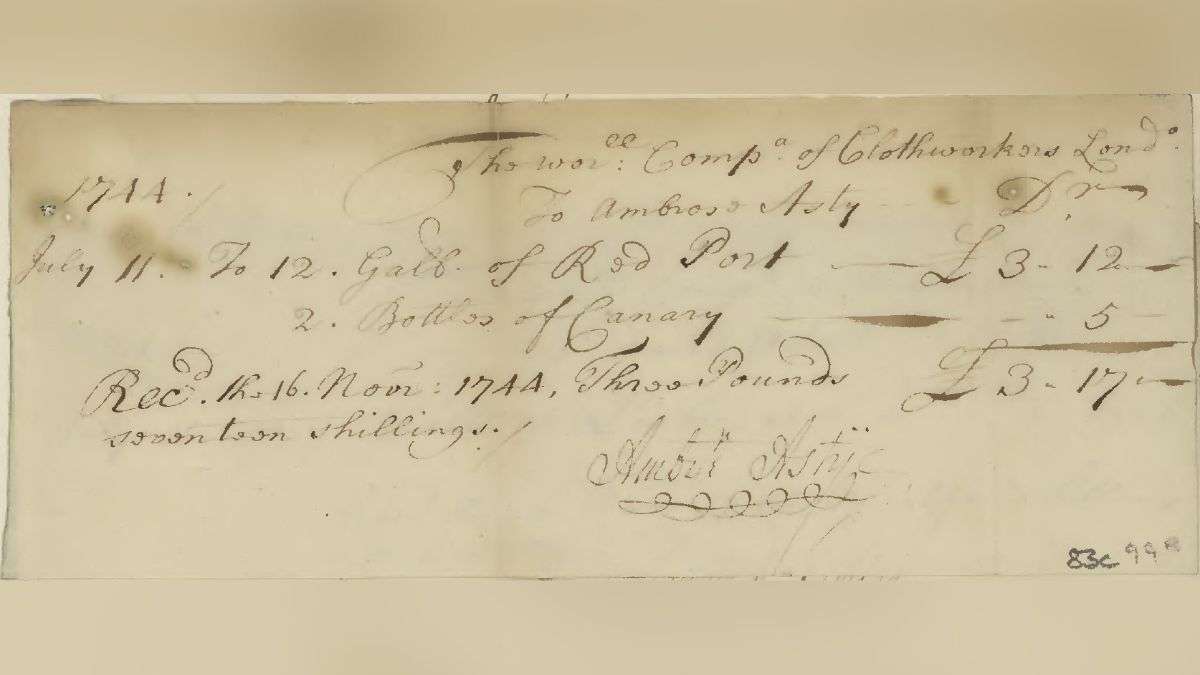 The wor.ll: Comp.a of Clothworkers Lond.o
1744. To Ambrose Asty D.r
July 11. To 12. Gall.s of Red Port £ 3 - 12 -
2. Bottles of Canary - " 5 -
Rec.d the 16. Nov.r: 1744, Three Pounds £ 3 - 17 -
seventeen shillings.
Asty
83c